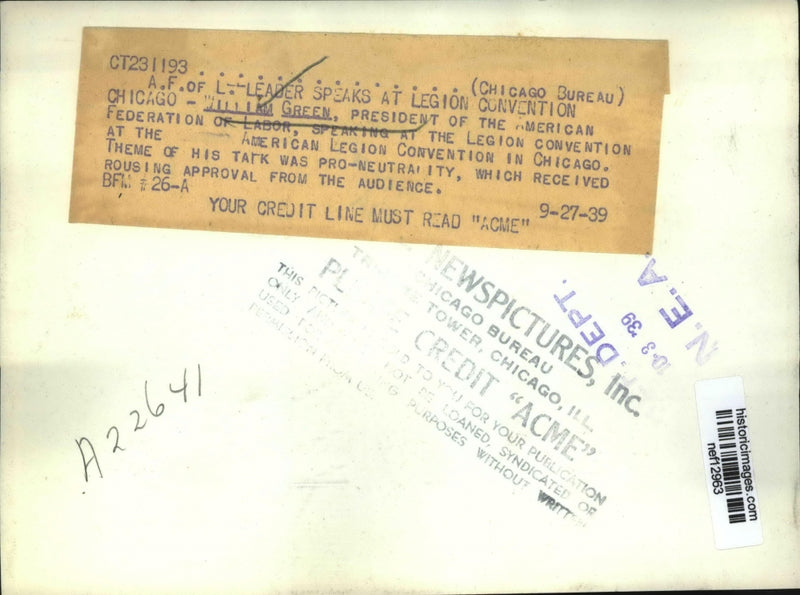 CT231193 . . . . . . . . . . . . . . (CHICAGO BUREAU)
A.F. OF L. LEADER SPEAKS AT LEGION CONVENTION
CHICAGO - WILLIAM GREEN, PRESIDENT OF THE AMERICAN
FEDERATION OF LABOR, SPEAKING AT THE LEGION CONVENTION
AT THE AMERICAN LEGION CONVENTION IN CHICAGO.
THEME OF HIS TALK WAS PRO-NEUTRALITY, WHICH RECEIVED
ROUSING APPROVAL FROM THE AUDIENCE.
BFM #26-A
9-27-39
YOUR CREDIT LINE MUST READ "ACME"
NEWSPICTURES, Inc.
CHICAGO BUREAU
TOWER, CHICAGO, ILL.
CREDIT "ACME"
THIS TO YOU FOR YOUR PUBLICATION
ONLY NOT BE LOANED, SYNDICATED OR
USED PURPOSES WITHOUT WRITTEN
PERMISSION FROM US.
DEPT.
10-3-39
N. E. A.
A22641
historicimages.com
nef12963